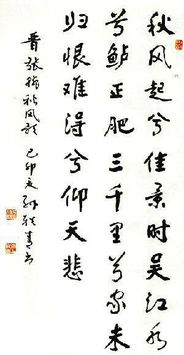 秋风起兮佳景时吴江水
兮鲈正肥三千里兮家未
归恨难得兮仰天悲
晋张翰秋风歌 己卯夏 孙轶青书